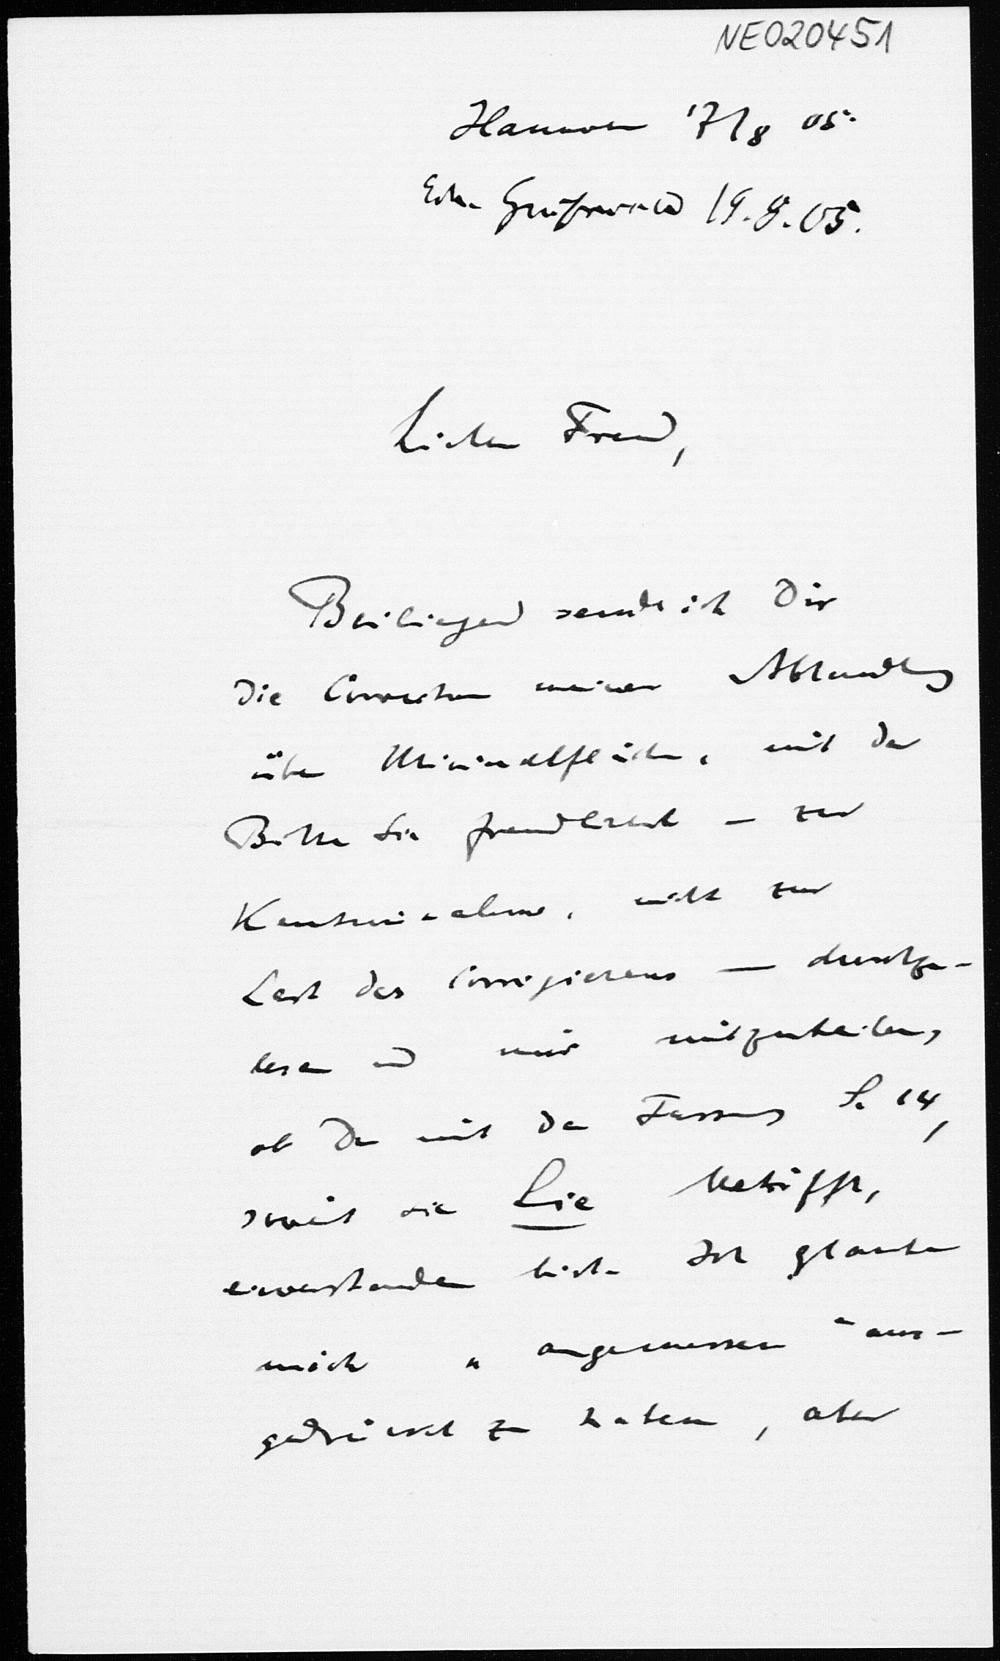 NE020451
Hannover 17/8 05.
Erh. Greifswald 19.8.05.
Lieber Freund,
Beiliegend sende ich Dir
die Correctur meiner Abhandlung
über Minimalflächen, mit der
Bitte sie freundlichst — zur
Kentnisnahme, nicht zur
Last des Corrigierens — durchzu-
lesen und mir mitzuteilen,
ob Du mit der Fassung S. 14,
soweit sie Lie betrifft,
einverstanden bist. Ich glaube
mich „ angemessen " aus-
gedrückt zu haben, aber